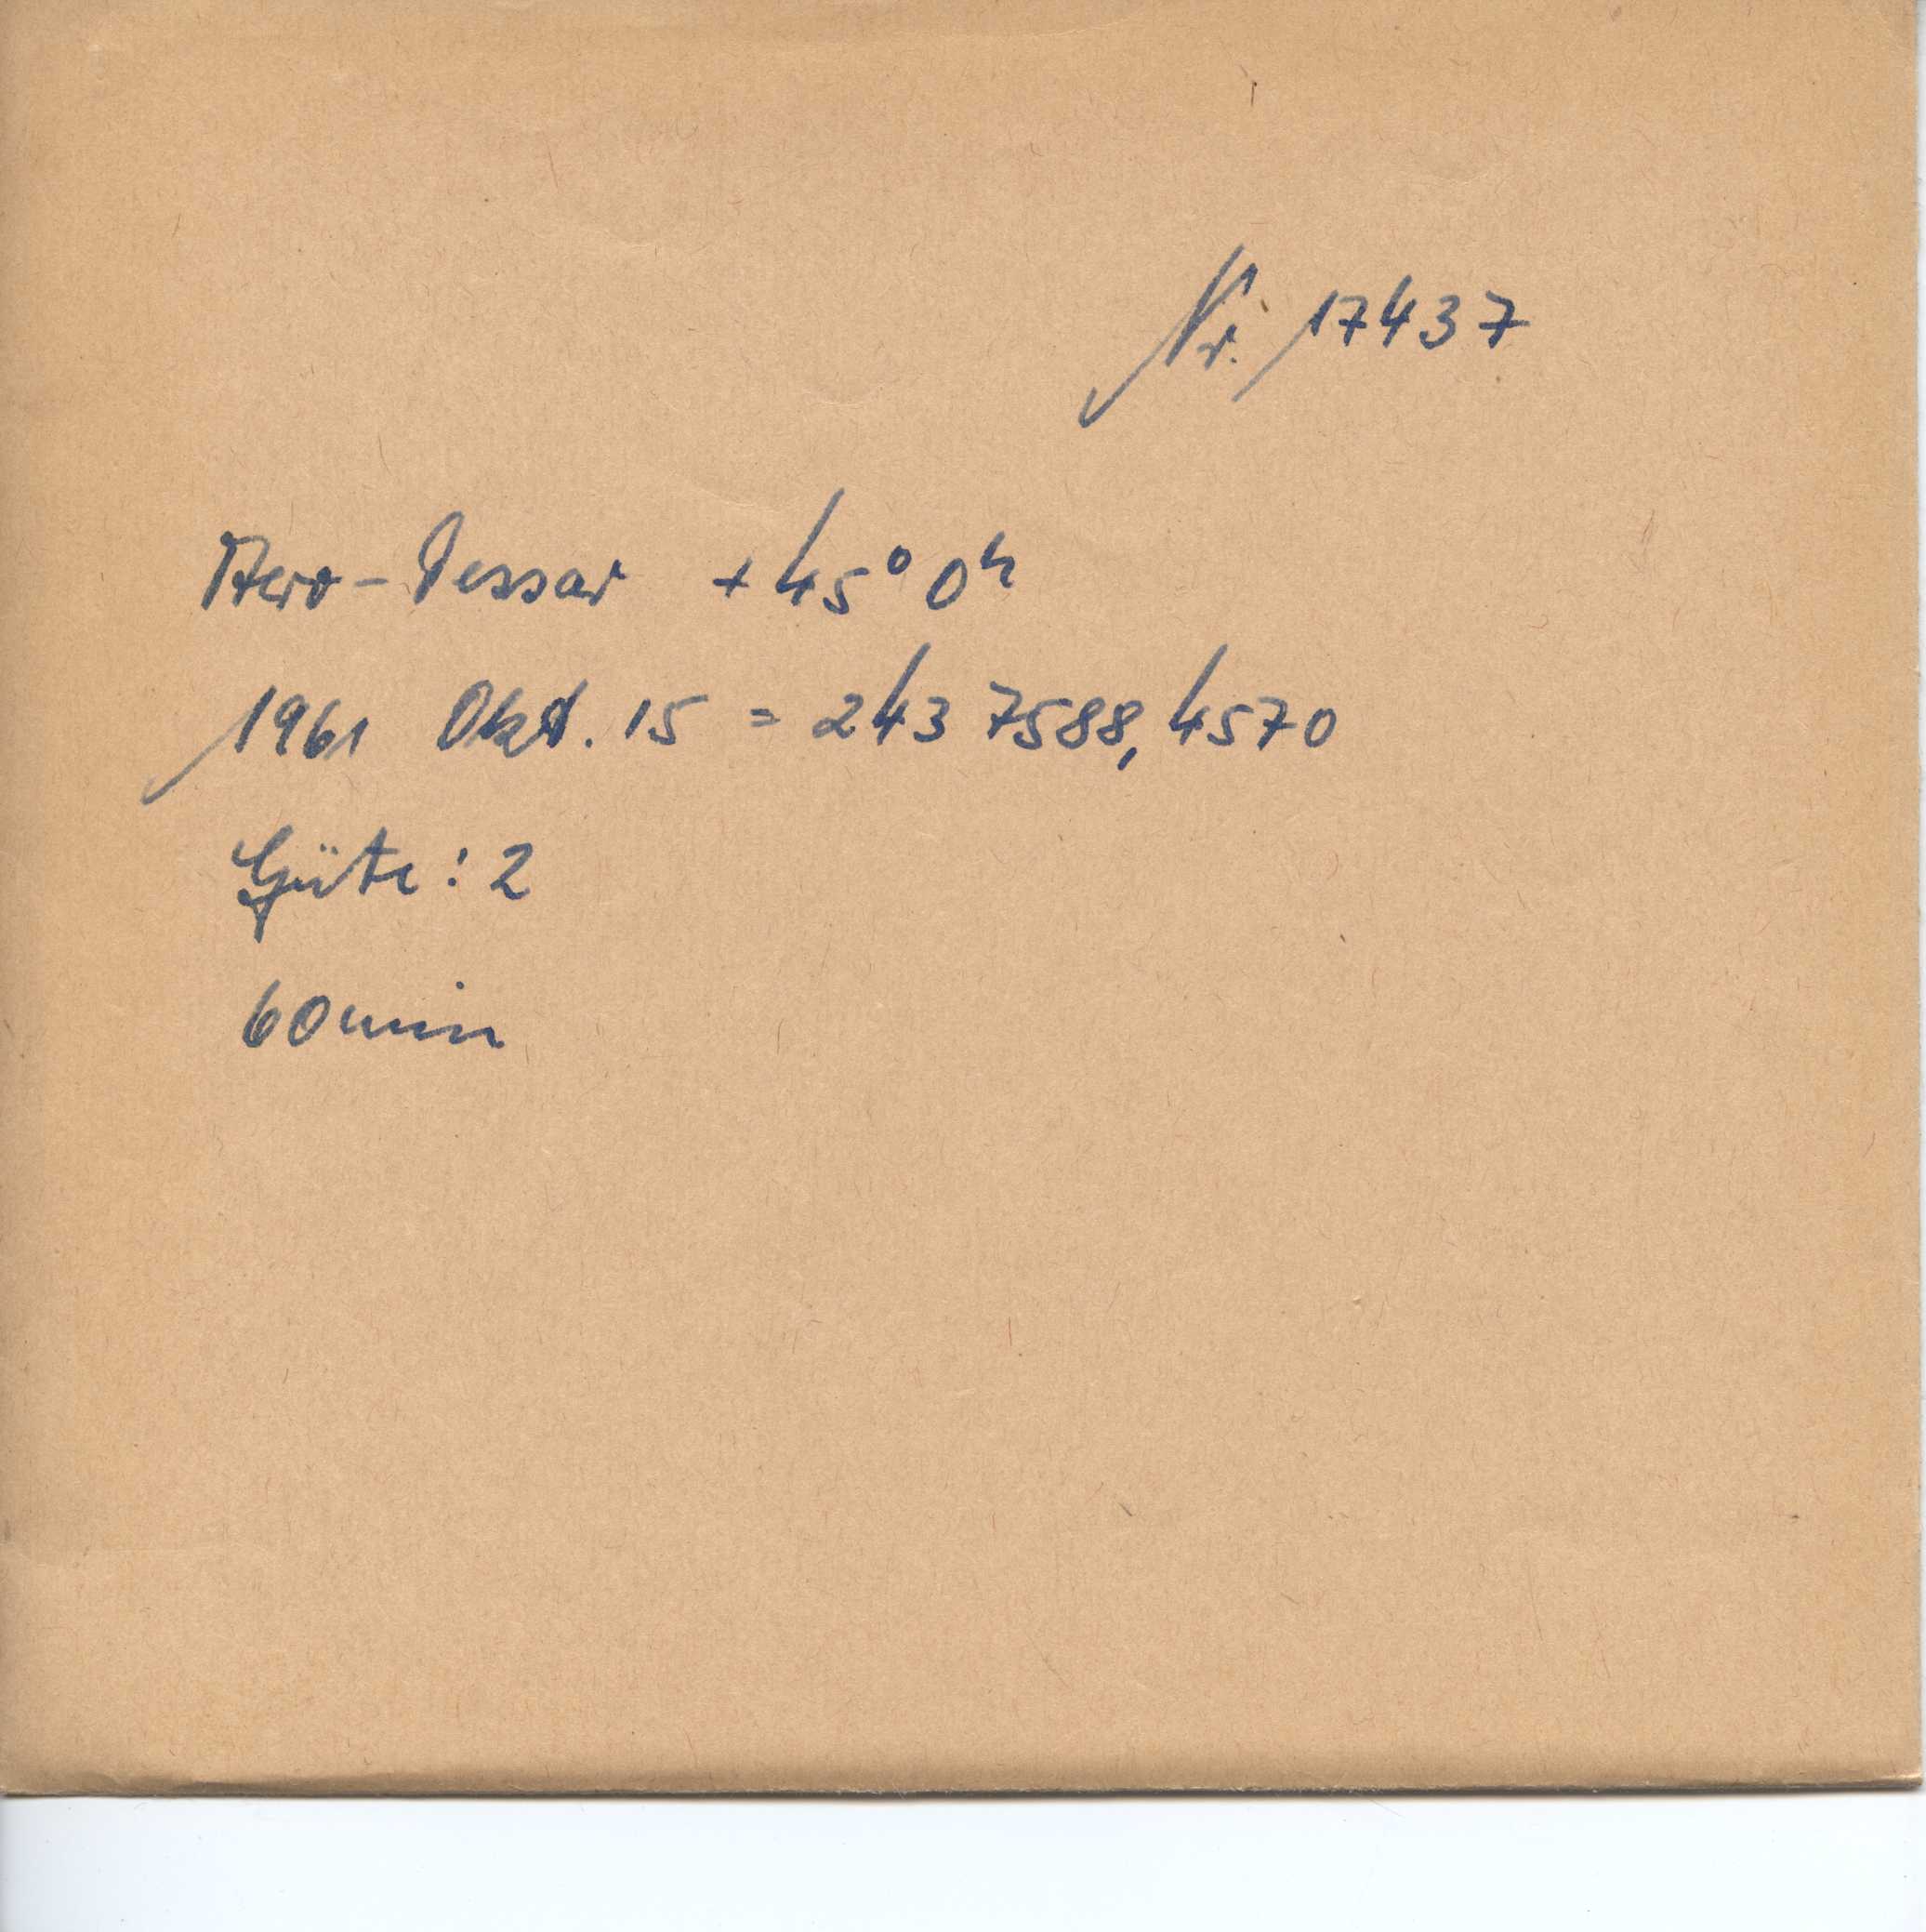 Nr. 17437
Aero-Tessar +45° 0ʰ
1961 Okt. 15 = 243 7588,4570
Güte: 2
60 min